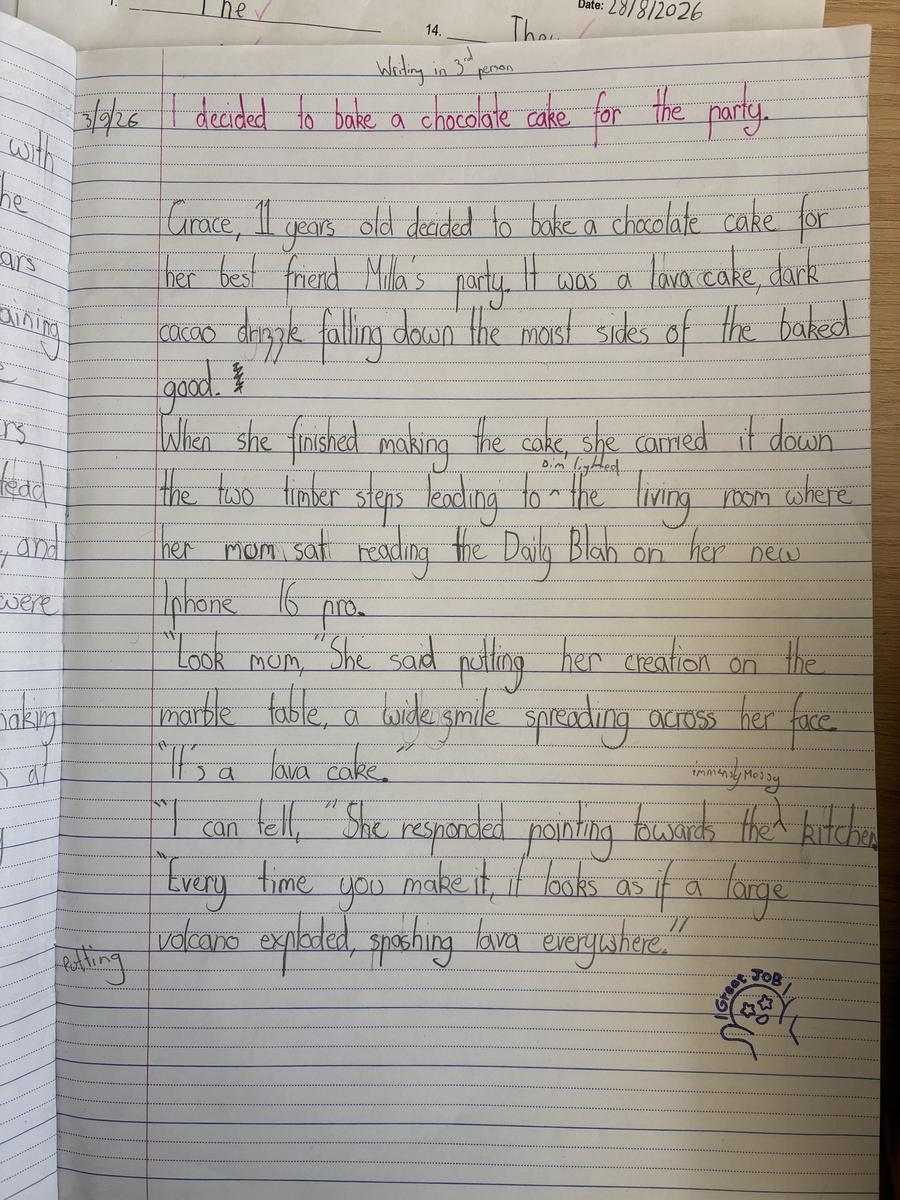 1. The
Date: 28/8/2026
14. The
Writing in 3rd person
3/9/26 I decided to bake a chocolate cake for the party.
Grace, 11 years old decided to bake a chocolate cake for
her best friend Milla's party. It was a lava cake, dark
cacao drizzle falling down the moist sides of the baked
good.
When she finished making the cake, she carried it down
Dim lighted
the two timber steps leading to ^ the living room where
her mom sat reading the Daily Blah on her new
Iphone 16 pro.
"Look mum," She said putting her creation on the
marble table, a wide smile spreading across her face
"It's a lava cake."
immensly Messy
"I can tell, "She responded pointing towards the ^ kitchen.
"Every time you make it, it looks as if a large
volcano exploded, sposhing lava everywhere."
Great JOB
with
he
ars
aining
rs
lead
, and
were
naking
at